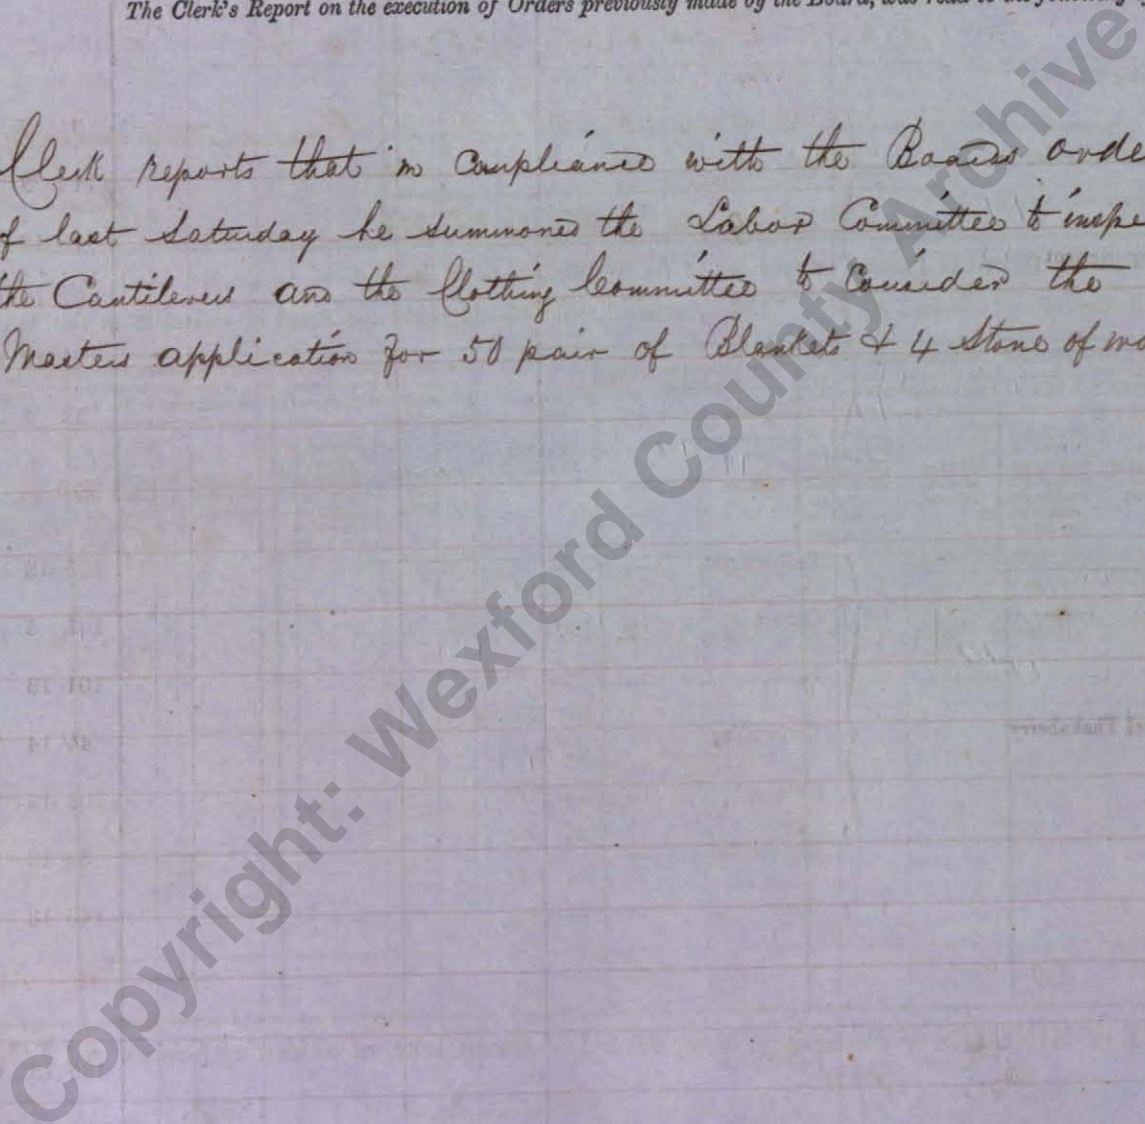 The Clerk's Report on the execution of Orders previously made by the Board, was read to the following
Clerk reports that in compliance with the Boards orde
of last Saturday he summoned the Labor Committee to inspe
the Cantilevers and the Clothing Committee to consider the
Masters application for 50 pair of Blankets & 4 Stone of wo
Copyright: Wexford County Archive